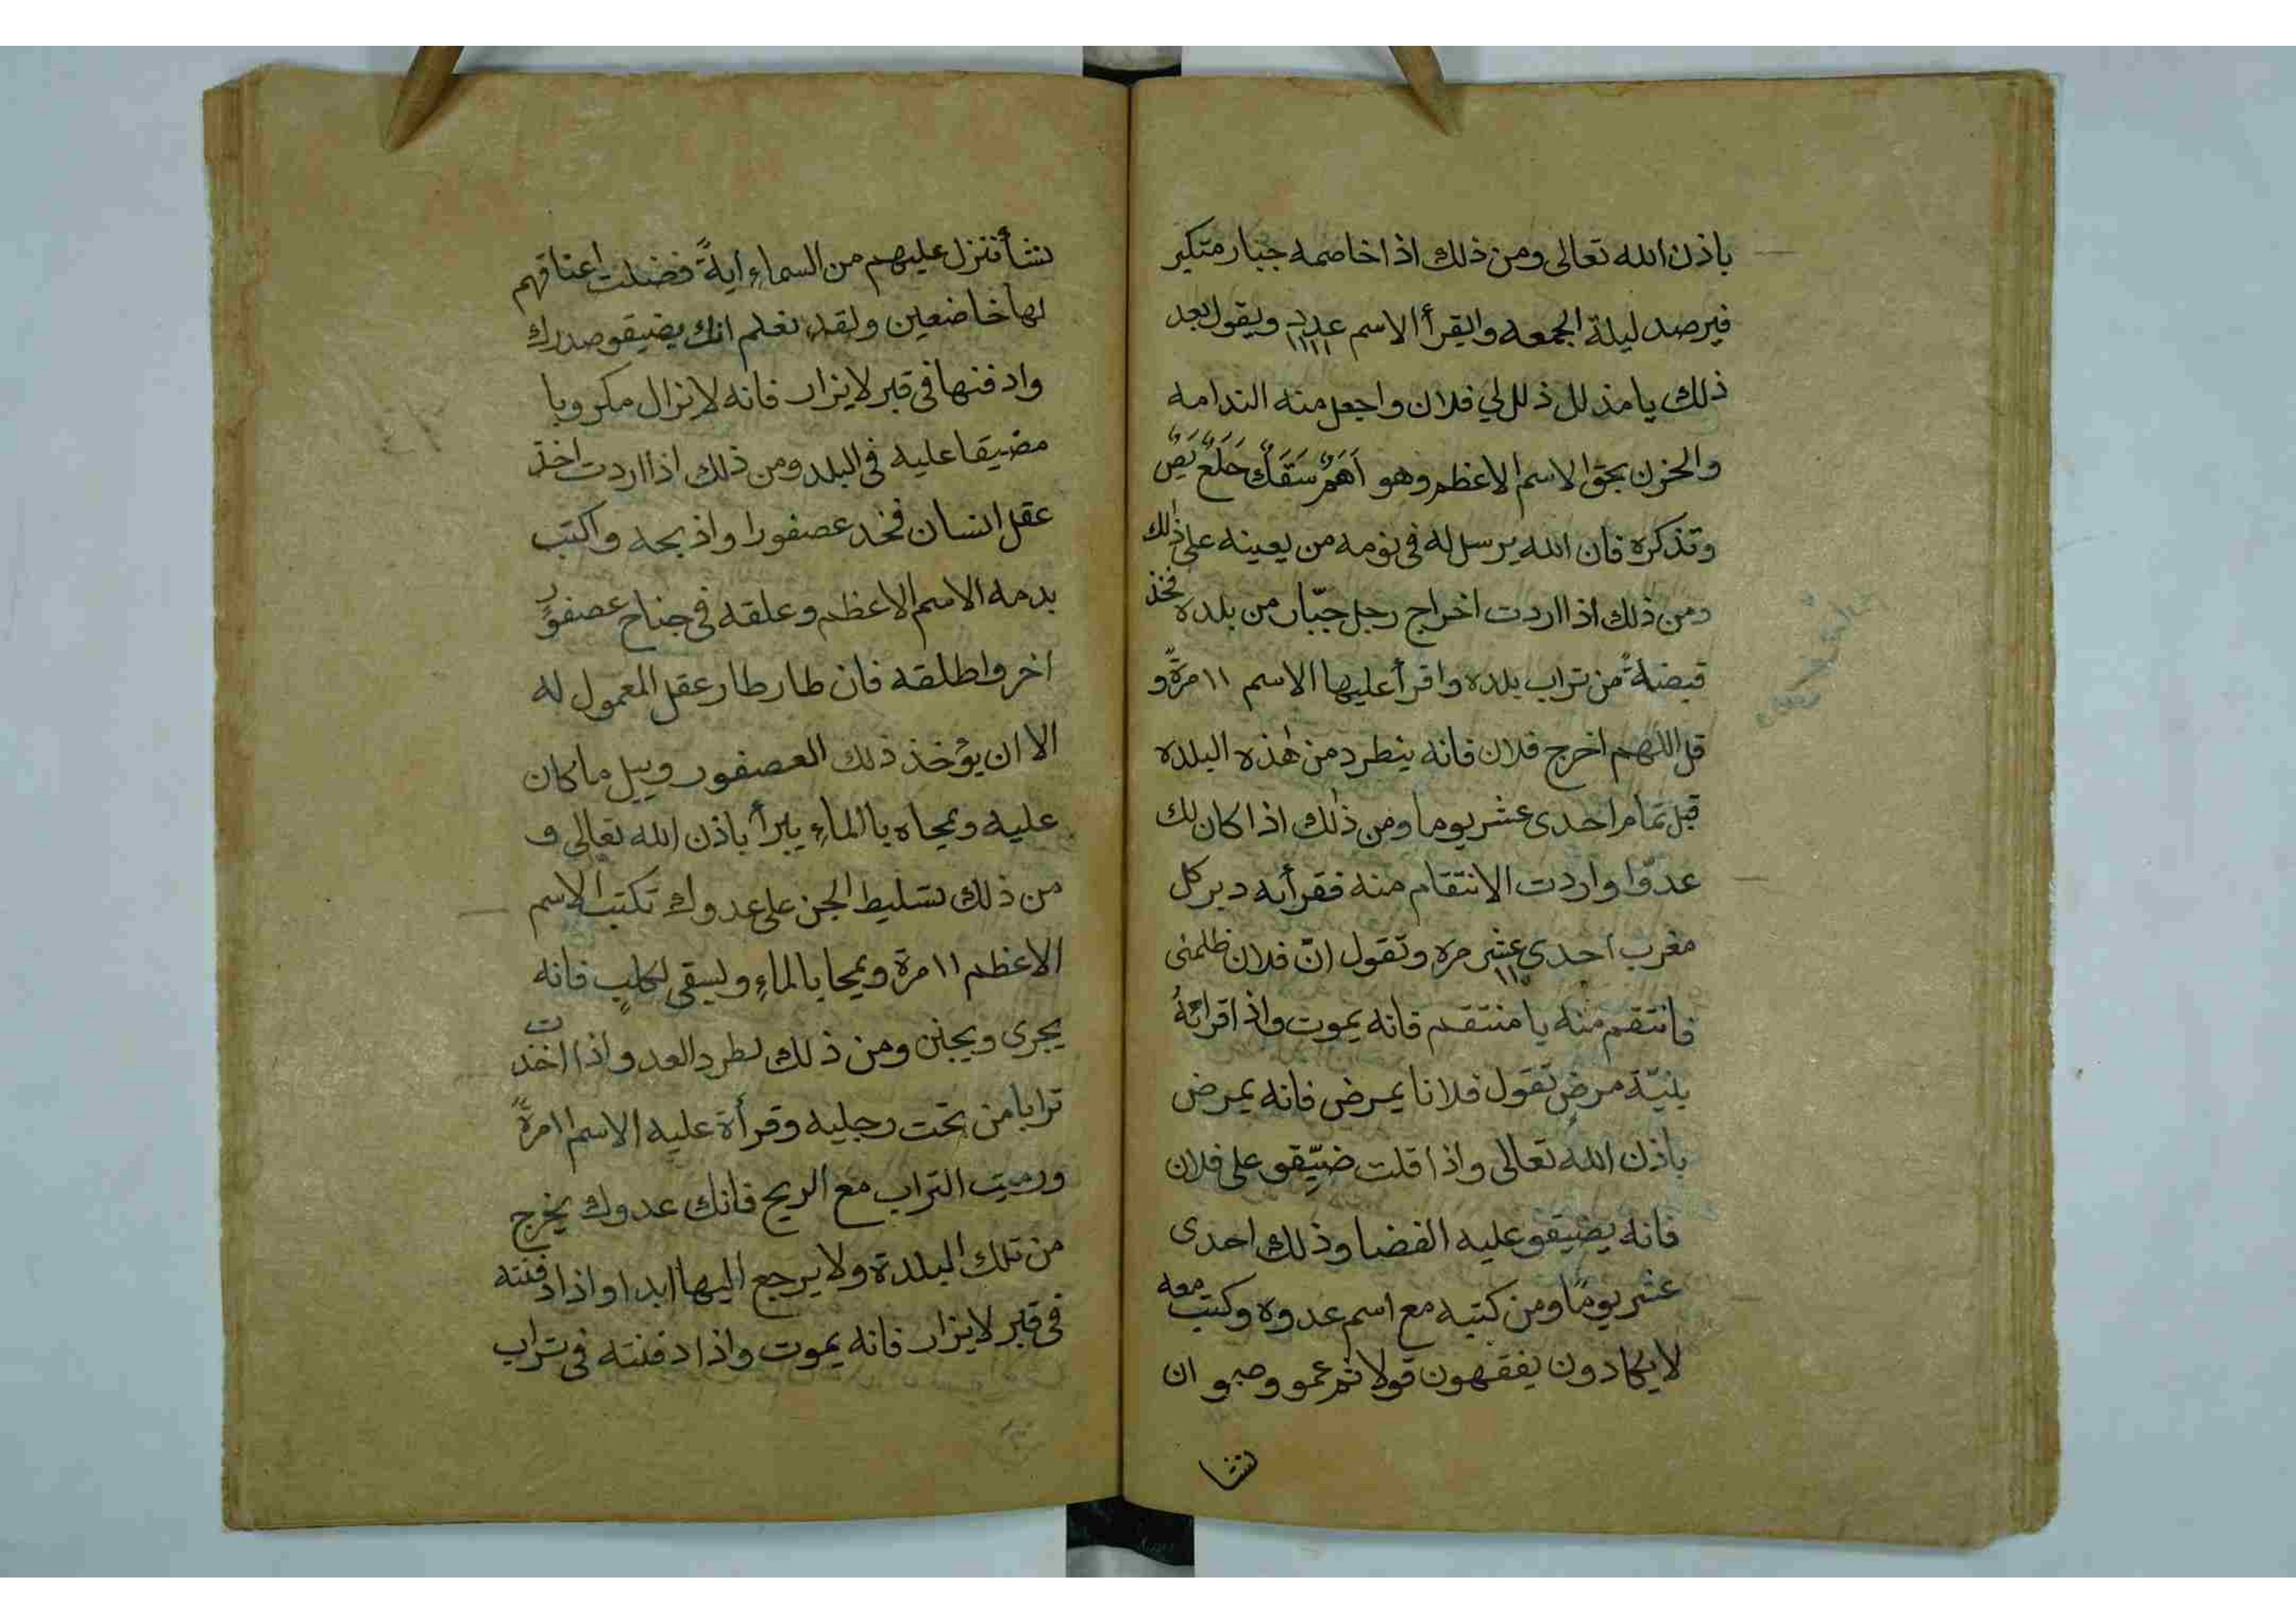 باذن الله تعالى ومن ذلك اذا خاصمه جبار متكبر
فيرصد ليلة الجمعه واليقرأ الاسم عدد ١١١١ ويقول بعد
ذلك يا مذلل ذلل لي فلان واجعل منه الندامه
والحزن بحق الاسم الاعظم وهو اَهَمٌ سَقَكٌ حَلَعٌ يَصٌ
وتذكره فان الله يرسل له في نومه من يعينه على ذلك
ومن ذلك اذا اردت اخراج رجل جبّار من بلده فخذ
قبضةً من تراب بلده واقرأ عليها الاسم ١١ مرةً و
قل اللهم اخرج فلان فانه ينطرد من هذه البلده
قبل تمام احدى عشر يوما ومن ذلك اذا كان لك
عدوّا واردت الانتقام منه فقرأيه دبر كل
مغرب احدى عشر مره ١١ وتقول انّ فلان ظلمنى
فانتقم منه يا منتقم فانه يموت واذا قرائهُ
بنيّة مرضٍ تقول فلانا يمرض فانه يمرض
باذن الله تعالى واذا قلت ضيّقو على فلان
فانه يضيقو عليه الفضا وذلك احدى
عشر يومًا ومن كتبه مع اسم عدوه وكتب معه
لا يكادون يفقهون قولا ثم عمو وصمو ان
نشا
نشأ ننزل عليهم من السماءِ ايةً فضلت اعناقهم
لها خاضعين ولقد نعلم انك يضيقو صدرك
وادفنها في قبر لا يزار فانه لا يزال مكروبا
مضيقا عليه في البلد ومن ذلك اذا اردت اخذ
عقل انسان فخد عصفورا واذبحه واكتب
بدمه الاسم الاعظم وعلقه في جناح عصفورٍ
اخر واطلقه فان طار طار عقل المعمول له
الا ان يؤخذ ذلك العصفور ويبل ما كان
عليه ويمحاه باالماءِ يبرأ باذن الله تعالى و
من ذلك تسليط الجن على عدوك تكتب الاسم
الاعظم ١١ مرة ويمحا بالماءِ ويسقى لكلبٍ فانه
يجرى ويجنن ومن ذلك لطرد العدو اذا اخذت
ترابا من تحت رجليه وقرأة عليه الاسم ١١ مرةً
ورميت التراب مع الريح فانك عدوك يخرج
من تلك البلدة ولا يرجع اليها ابدا واذا دفنته
في قبر لا يزار فانه يموت واذا دفنته في تراب